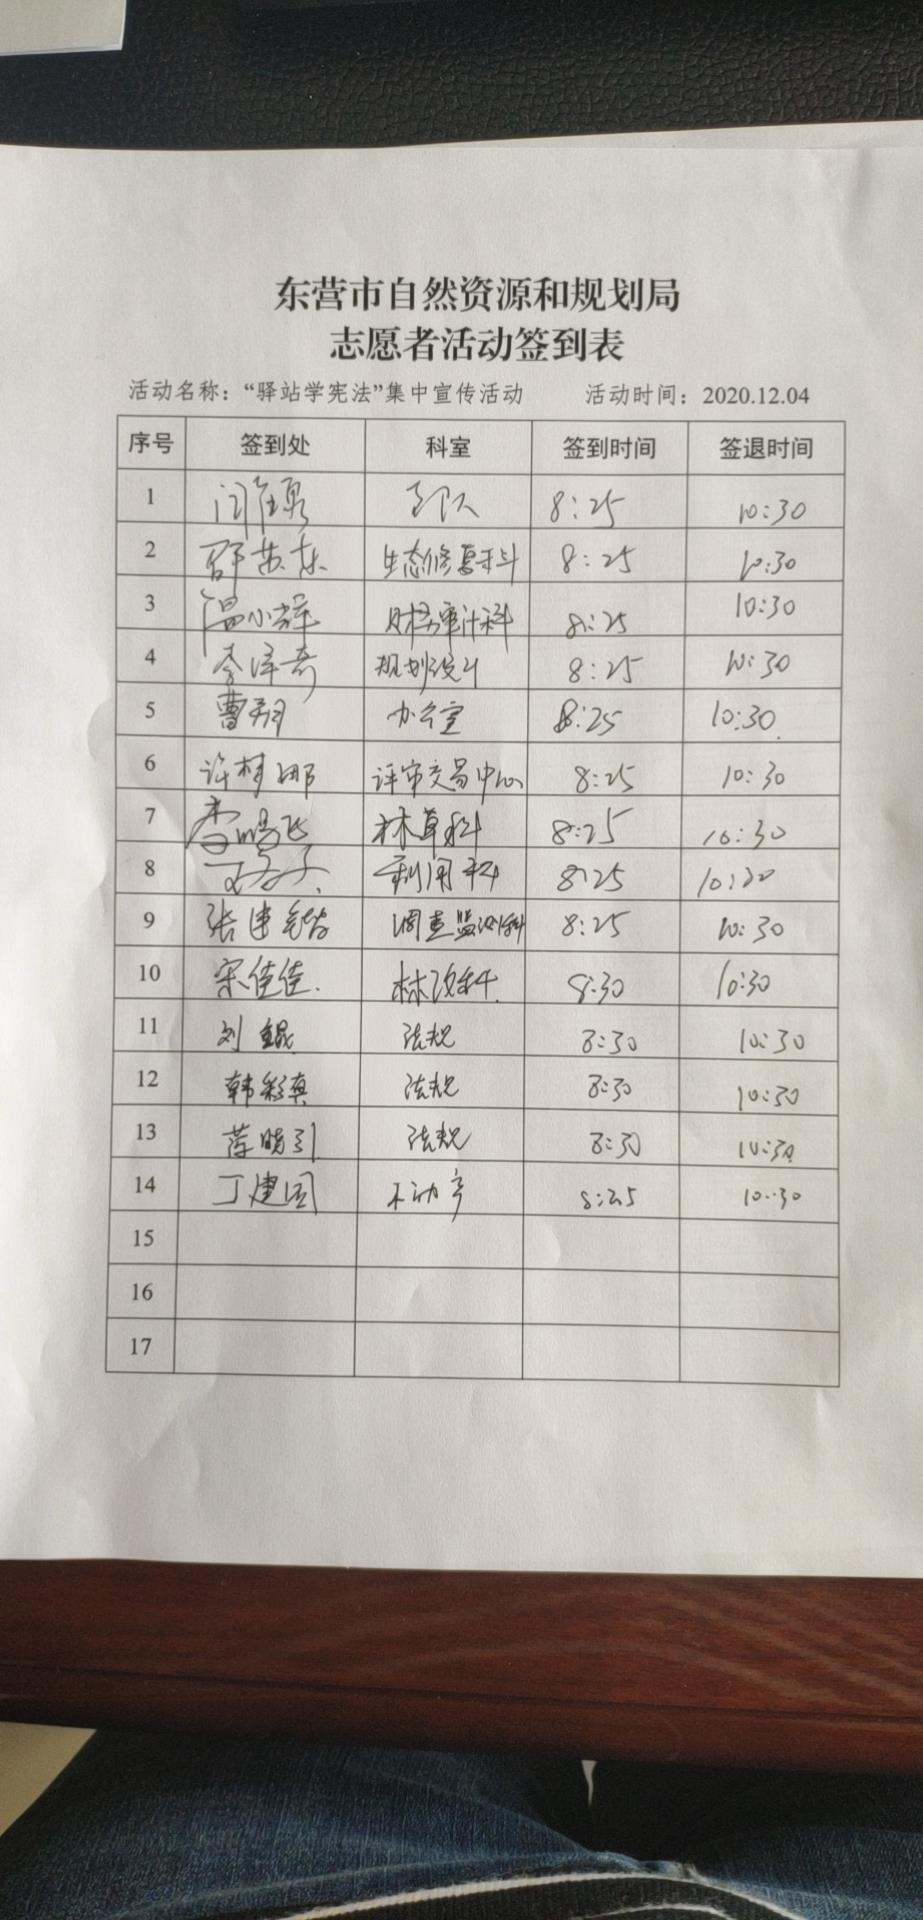 东营市自然资源和规划局
志愿者活动签到表
活动名称：“驿站学宪法”集中宣传活动 活动时间：2020.12.04
序号 签到处 科室 签到时间 签退时间
1 8:25 10:30
2 舒英东 生态修复科 8:25 10:30
3 温小辉 财务审计科 8:25 10:30
4 李泽奇 规划设计 8:25 10:30
5 曹翔 办公室 8:25 10:30
6 许树娜 评审交易中心 8:25 10:30
7 李鹏飞 林草科 8:25 10:30
8 利用科 8:25 10:30
9 张建锴 调查监测科 8:25 10:30
10 宋佳佳 林改科 8:30 10:30
11 刘鲲 法规 8:30 10:30
12 韩彩真 法规 8:30 10:30
13 薛晓引 法规 8:30 10:30
14 丁建国 不动产 8:25 10:30
15
16
17